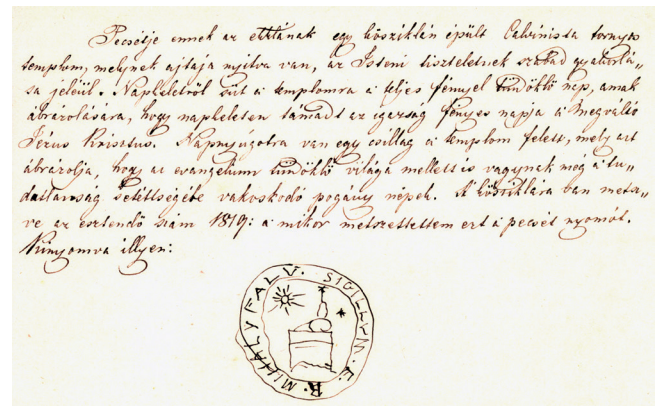 Pecsétje ennek az ekklának egy kősziklán épült Calvinista tornyos
templom, melynek ajtaja nyitva van, az Isteni tiszteletnek szabad gyakorlá-
sa jeléül. Napkeletről süt a templomra a teljes fénnyel tündöklő nap, annak
ábrázolására, hogy napkeleten támadt az igazság fényes napja a Megváltó
Jézus Krisztus. Napnyúgotra van egy csillag a templom felett, mely azt
ábrázolja, hogy az evangelium tündöklő világa mellett is vagynak még a tu-
datlanság setéttségébe vakoskodó pogány népek. A kősziklára van metz-
ve az esztendő szám 1819: a mikor metszettettem ezt a pecsét nyomót.
Kinyomva illyen:
MIHALYFALV. SIGILLVM. E. R.